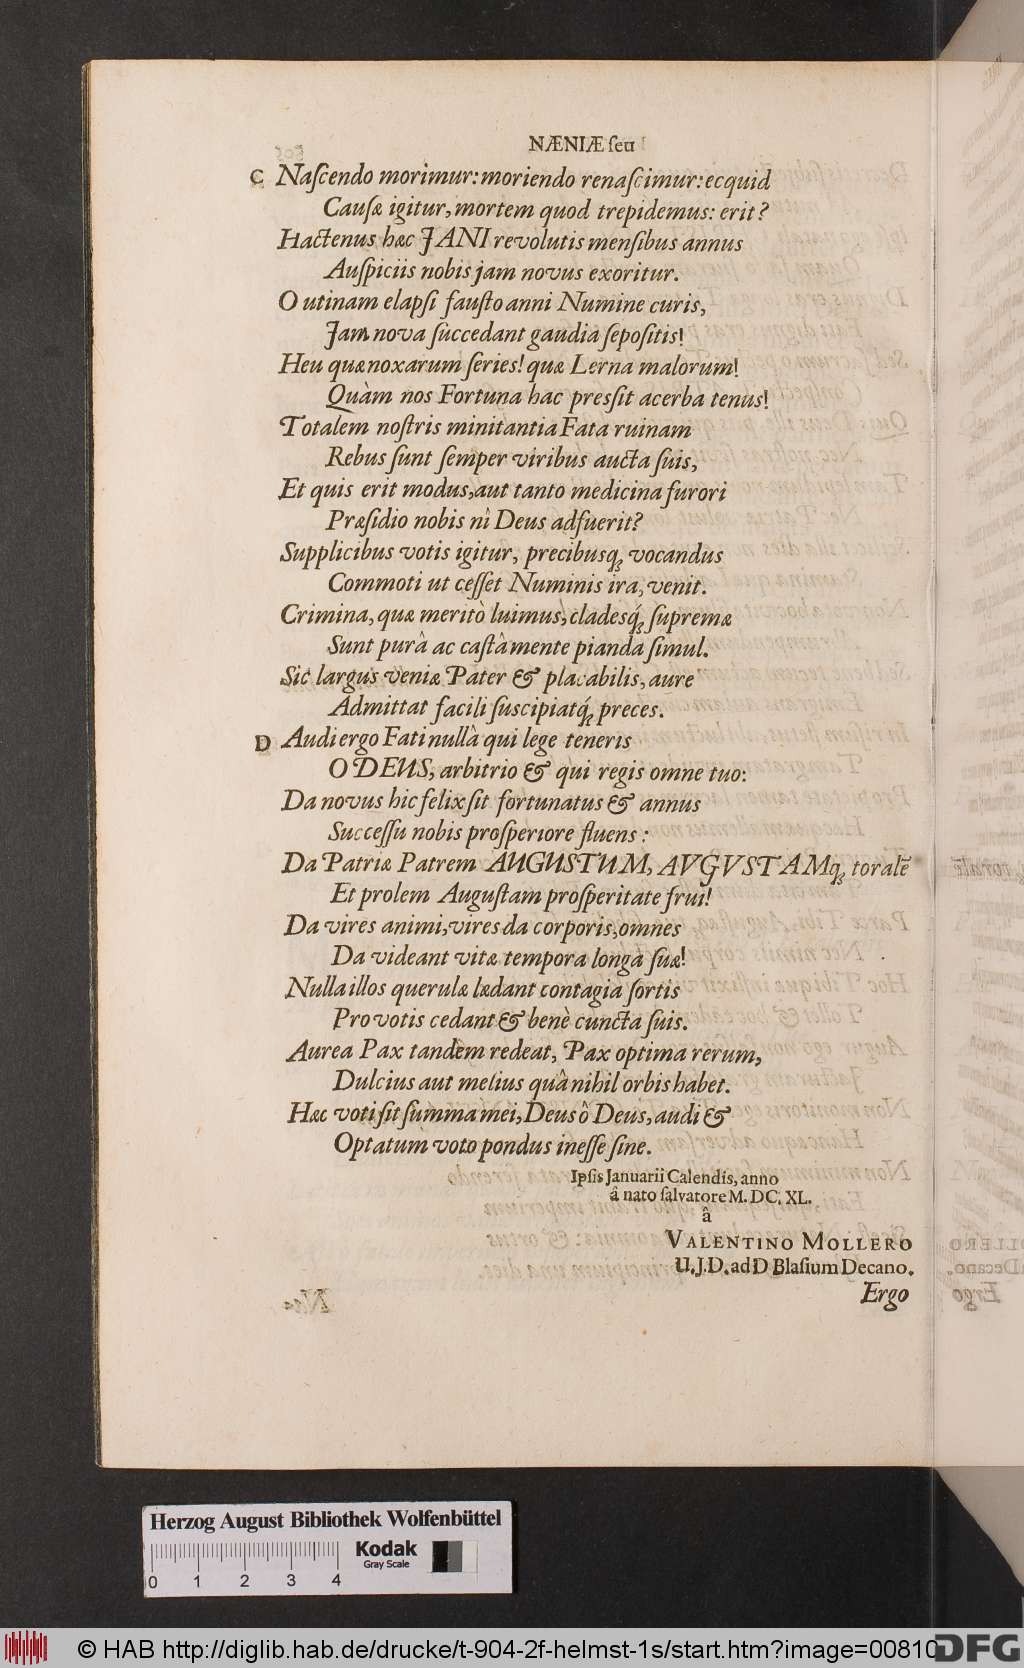 NÆNIÆ ſeu
C Naſcendo morimur: moriendo renaſcimur: ecquid
Cauſæ igitur, mortem quod trepidemus: erit?
Hactenus hæc JANI revolutis menſibus annus
Auſpiciis nobis jam novus exoritur.
O utinam elapſi fauſto anni Numine curis,
Jam nova ſuccedant gaudia ſepoſitis!
Heu quæ noxarum ſeries! quæ Lerna malorum!
Quàm nos Fortuna hac preſſit acerba tenus!
Totalem noſtris minitantia Fata ruinam
Rebus ſunt ſemper viribus aucta ſuis,
Et quis erit modus, aut tanto medicina furori
Præſidio nobis nî Deus adfuerit?
Supplicibus votis igitur, precibusq; vocandus
Commoti ut ceſſet Numinis ira, venit.
Crimina, quæ meritò luimus, cladesq́; ſupremæ
Sunt purâ ac caſtâ mente pianda ſimul.
Sic largus veniæ Pater & placabilis, aure
Admittat facili ſuscipiatq́; preces.
D Audi ergo Fati nullà qui lege teneris
O DEUS, arbitrio & qui regis omne tuo:
Da novus hic felix ſit fortunatus & annus
Succeſſu nobis proſperiore fluens:
Da Patriæ Patrem AUGUSTUM, AVGVSTAMq; toralẽ
Et prolem Auguſtam proſperitate frui!
Da vires animi, vires da corporis, omnes
Da videant vitæ tempora longa ſuæ!
Nulla illos querulæ lædant contagia ſortis
Pro votis cedant & benè cuncta ſuis.
Aurea Pax tandem redeat, Pax optima rerum,
Dulcius aut melius quâ nihil orbis habet.
Hæc voti ſit ſumma mei, Deus ô Deus, audi &
Optatum voto pondus ineſſe ſine.
Ipſis Januarii Calendis, anno
â nato ſalvatore M. DC. XL.
â
VALENTINO MOLLERO
U.J.D. ad D Blaſium Decano.
Ergo
Herzog August Bibliothek Wolfenbüttel
Kodak
Gray Scale
0 1 2 3 4
© HAB http://diglib.hab.de/drucke/t-904-2f-helmst-1s/start.htm?image=00810
DFG